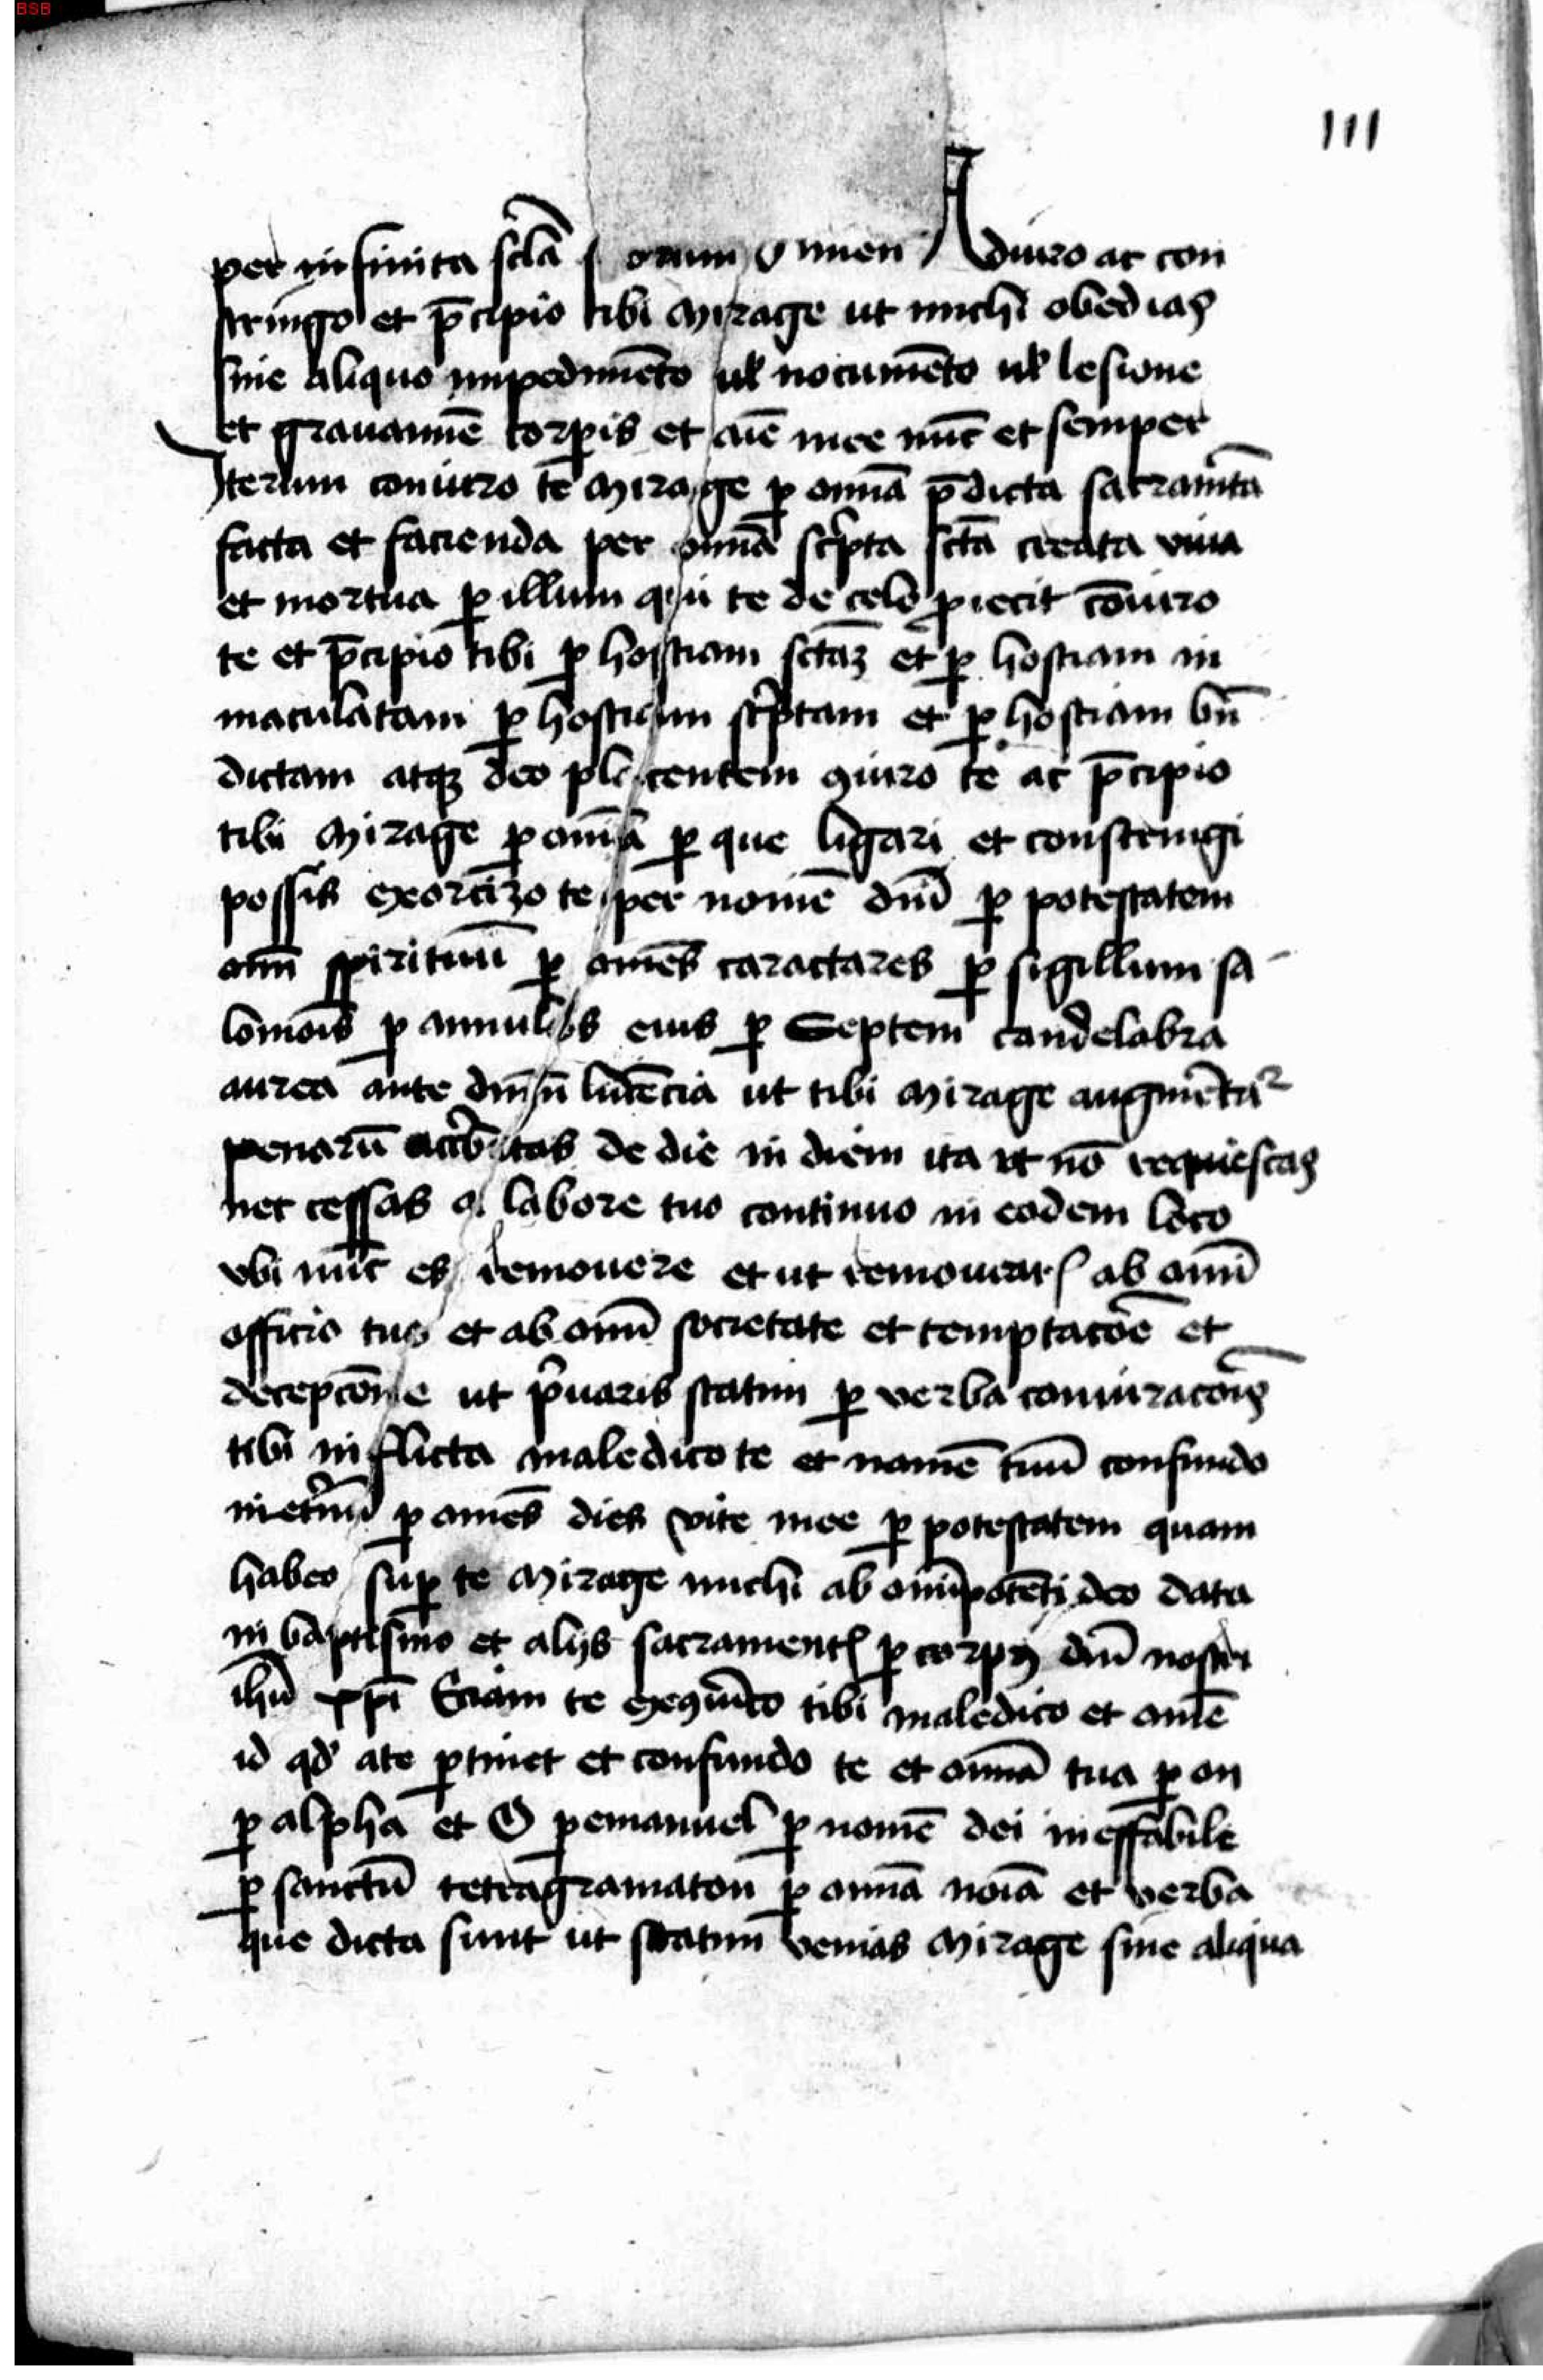 BSB
111
per infinita sc̄la s orum Amen Adiuro ac con
stringo et p̄cipio tibi Mirage ut michi obedias
sine aliquo impedimēto ul' nocumēto ul' lesione
et grauamīe corpis et aīe mee nūc et semper
Iterum coniuro te Mirage ꝑ omīa p̄dicta sacramīta
facta et facienda per omīa sc̄pta sc̄tā creata viua
et mortua ꝑ illum qui te de celo ꝓiecit cōiuro
te et p̄cipio tibi ꝑ hostiam sc̄taꝫ et ꝑ hostiam in
maculatam ꝑ hostiam sc̄ptam et ꝑ hostiam bn̄
dictam atqꝫ deo placentem ꝯiuro te ac p̄cipio
tibi Mirage ꝑ omīa ꝑ que ligari et constringi
possis exorcizo te per nomē dn̄i ꝑ potestatem
om̄ spirituū ꝑ omēs caractares ꝑ sigillum sa
lomōis ꝑ annulos eius ꝑ Septem candelabra
aurea ante dn̄m lucēcia ut tibi Mirage augmēta
penarū acerbitas de die in diem ita ut nō requiescas
nec cessas a labore tuo continuo in eodem loco
vbi nūc es remouere et ut remouearꝭ ab omī
officio tuo et ab omī societate et temptacōe et
decepcōne ut p̄uaris statim ꝑ verba coniuracōis
tibi inflicta maledico te et nomē tuū confundo
in et̄nū ꝑ omēs dies vite mee ꝑ potestatem quam
habeo suꝑ te Mirage michi ab omīpotēti deo data
in baptismo et alijs sacramentꝭ ꝑ corpꝰ dn̄i nostri
ihū xp̄i Eciam te exꝯīco tibi maledico et omē
id qd' ate ꝑtinet et confundo te et omīa tua ꝑ on
ꝑ alpha et O ꝑ emanuel ꝑ nomē dei ineffabile
ꝑ sanctū tetragramaton ꝑ omīa noīa et verba
que dicta sunt ut statim venias Mirage sine aliqua